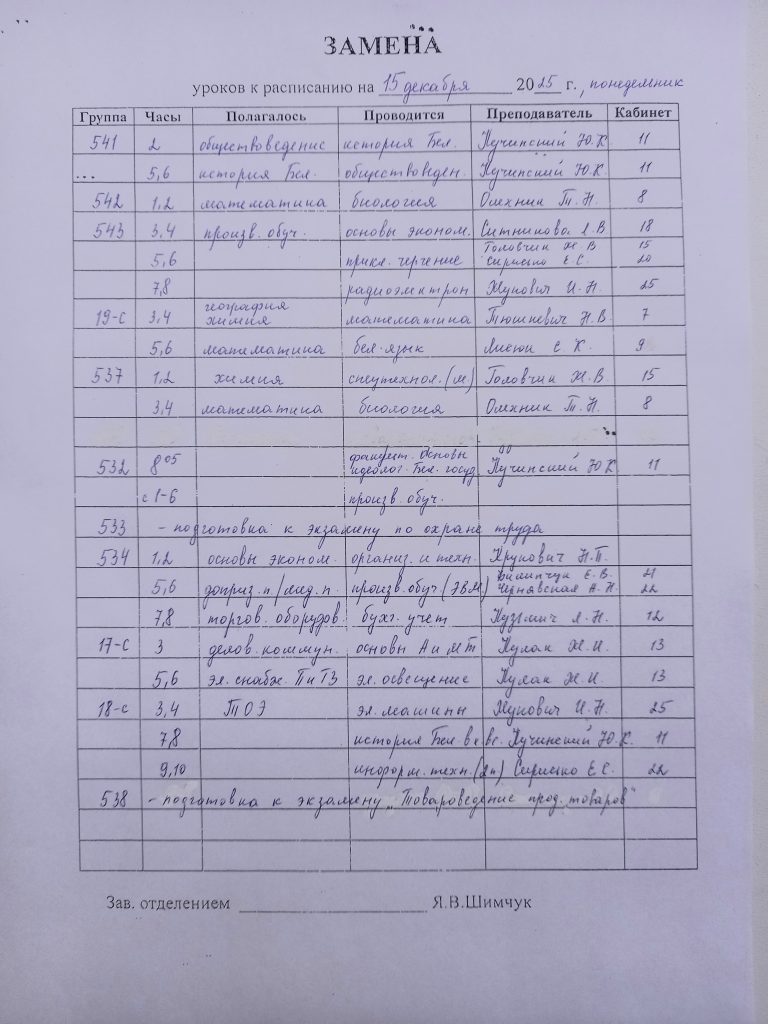 ЗАМЕНА
уроков к расписанию на 15 декабря 2025 г., понедельник
Группа Часы Полагалось Проводится Преподаватель Кабинет
541 2 обществоведение история Бел. Кучинский Ю.К 11
... 5,6 история Бел. обществоведен. Кучинский Ю.К 11
542 1,2 математика биология Олехник Т.Н. 8
543 3,4 произв. обуч. основы эконом. Ситникова Л.В 18
5,6 прикл. черчение Головчик Ж.В 15
Сирисько Е.С. 20
7,8 радиоэлектрон Жукович И.Н. 25
19-с 3,4 география
химия математика Тюшкевич Н.В 7
5,6 математика бел. язык Е.К. 9
537 1,2 химия спецтехнол. (м) Головчик Ж.В. 15
3,4 математика биология Олехник Т.Н. 8
532 8 05 факульт. Основы
идеолог. Бел. госуд. Кучинский Ю.К 11
с 1-6 произв. обуч.
533 - подготовка к экзамену по охране труда
534 1,2 основы эконом. организ. и техн. Крукович Н.П.
5,6 доприз.п/мед.п. произв. обуч (ЭВМ) Филипчук Е.В. 21
Чернявская А.Н. 22
7,8 торгов. оборудов. бухг. учет Кузьмич Л.Н. 12
17-с 3 делов. коммун. основы А и МТ Кулак Ж.И. 13
5,6 эл. снабж. П и ГЗ эл. освещение Кулак Ж.И. 13
18-с 3,4 ТОЭ эл. машины Жукович И.Н. 25
7,8 история Бел. в Кучинский Ю.К. 11
9,10 информ. техн. (2п) Сирисько Е.С. 22
538 - подготовка к экзамену „Товароведение прод. товаров"
Зав. отделением Я.В.Шимчук